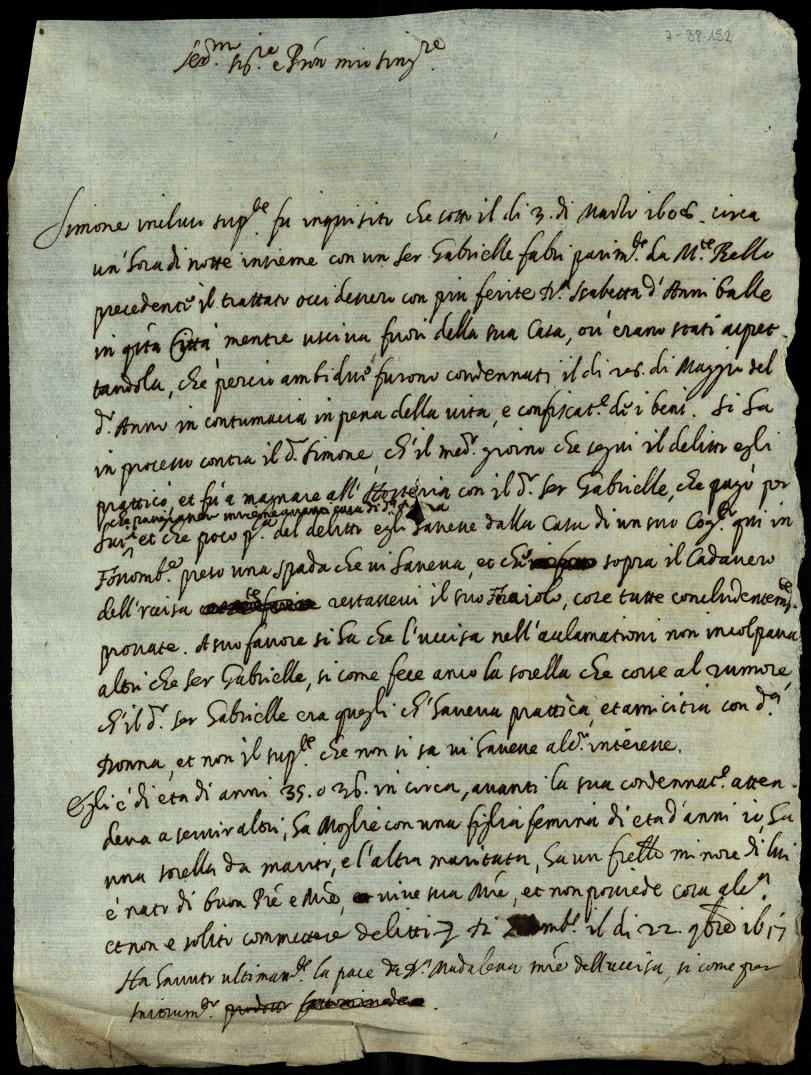 7-38.152
Ser.mo Sig.re e Pron mio Sing.re
Simone incluso sup.te fu inquisito che sotto il di 3. di Marzo 1606. circa
un'hora di notte insieme con un ser Gabrielle fabri parim.te da M.te Bello
precedente il trattato occidessero con piu ferite d.a Isabetta d'Anni balle
in q'sta Città mentre usciva fuori della sua Casa, ov'erano stati aspet-
tandola, che perciò ambidue furono condennati il di 26. di Maggio del
d.o Anno in contumacia in pena della vita, e confiscat.e de i beni. Si ha
in processo contra il d.o Simone, ch'il med.o giorno che seguì il delitto egli
pratticò, et fu a magnare all'Hosteria con il d.o ser Gabrielle, che pagò per
lui, et che poco p.a del delitto egli havesse dalla Casa di un suo Cog.o qui in
preso una spada che vi haveva, et che sopra il Cadavero
dell'uccisa restassevi il suo Feraiolo, cose tutte concludentem.te
provate. A suo favore si ha che l'uccisa nell'aclamationi non incolpava
altri che ser Gabrielle, si come fece anco la sorella che corse al rumore,
ch'il d.o ser Gabrielle era quegli ch'haveva prattica, et amicitia con d.a
Donna, et non il sup.te che non si sa vi havesse alc.o interesse.
Egli è di età di anni 35. o 36. in circa, avanti la sua condennat.e atten-
deva a servir altri, ha Moglie con una figlia femina di età d'anni 10, ha
una sorella da marito, e l'altra maritata, ha un fratello minore di lui
è nato di buon Pre e Mre, vive sua Mre, et non possiede cosa alc.a
et non è solito commettere delitti il di 22. 9bre 1617
Ha havuto ultimam.te la pace da Madalena mre dell'uccisa, si come